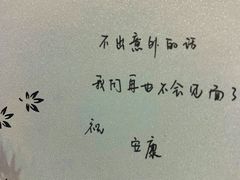 不出意外的话
我们再也不会见面了
祝
安康